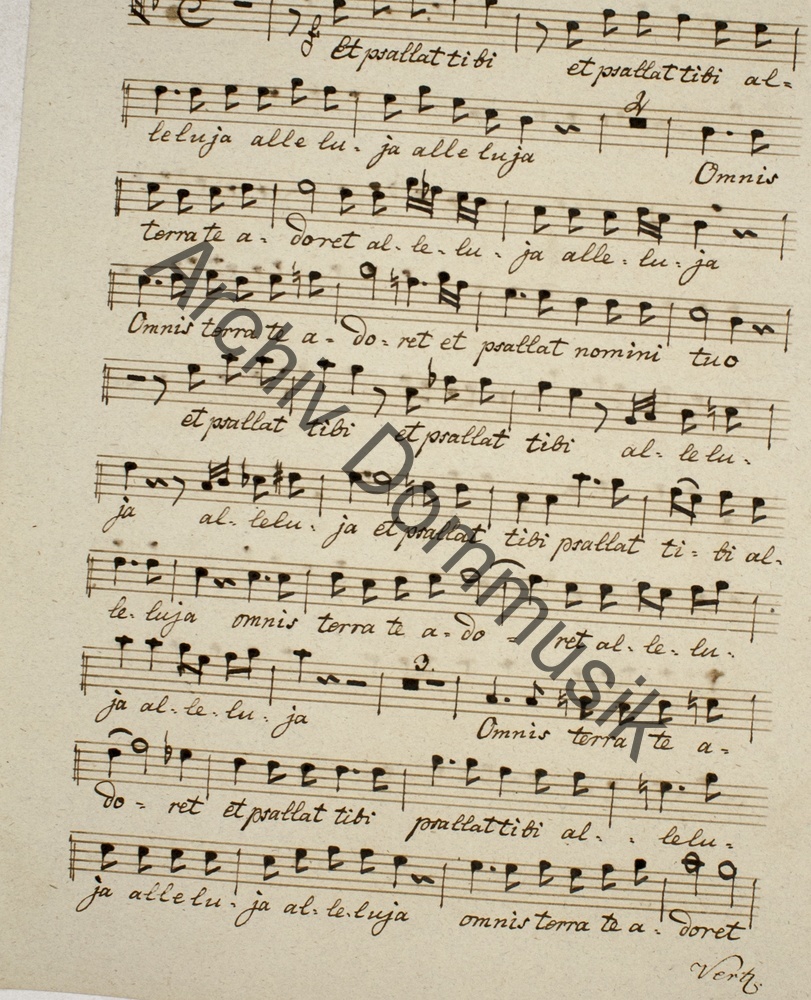 Et psallat tibi et psallat tibi al=
leluja alle lu. ja alle luja 2 Omnis
terra te a= doret al=. le=. lu. ja alle=. lu. ja
Omnis terra te a= do=. ret et psallat nomini tuo
et psallat tibi et psallat tibi al=. le lu.
ja al=. lelu. ja et psallat tibi psallat ti=. bi al=.
le=. luja omnis terra te a=. do = ret al=. le=. lu.
ja al=. le=. lu. ja 3. Omnis terra te a=
do=. ret et psallat tibi psallat tibi al=. . lelu.
ja alle lu. ja al=. le=. luja omnis terra te a=. doret
Vert.
Archiv Dommusik